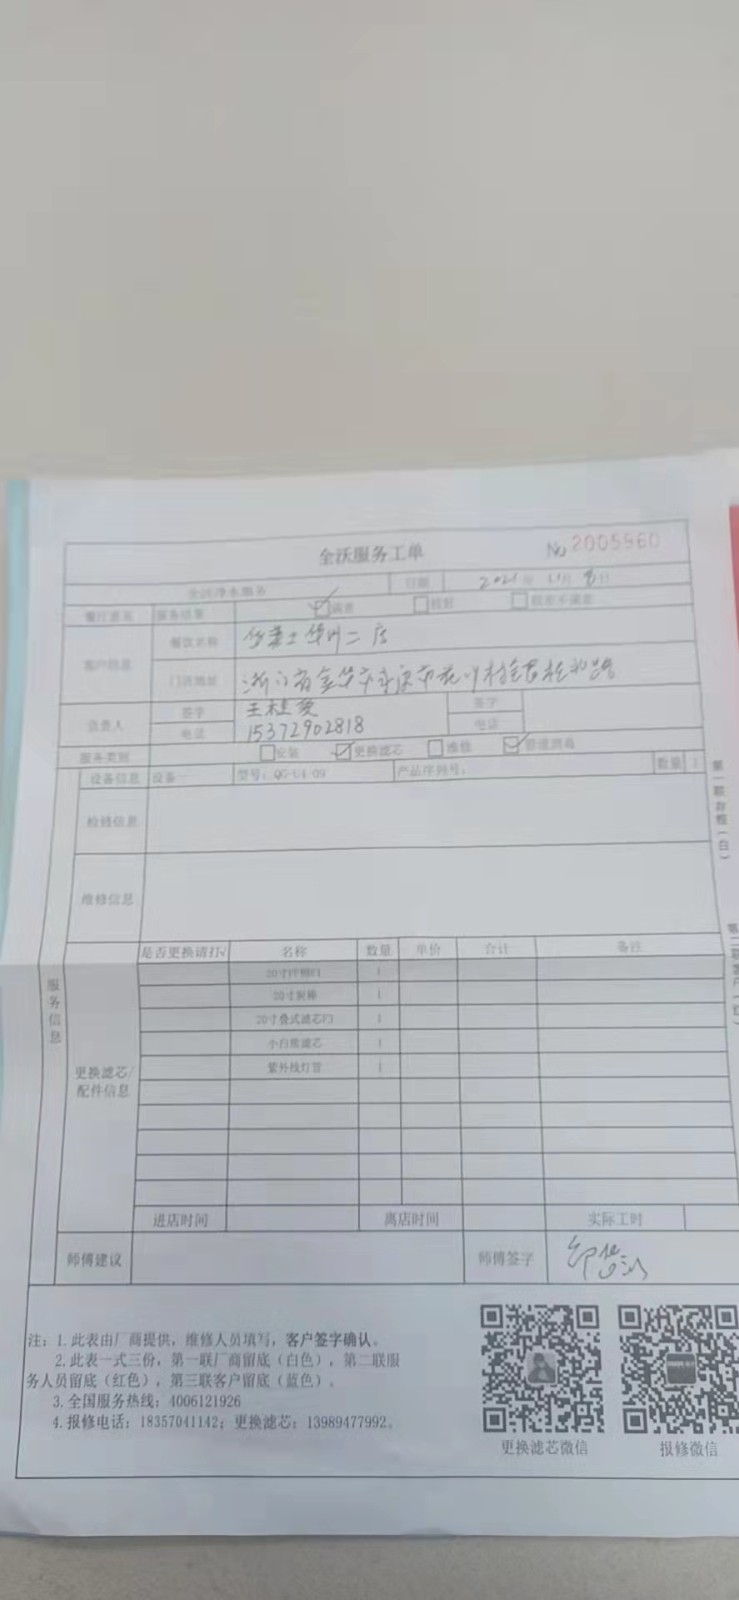 全沃服务工单
No 2005960
全沃净水服务 日期 2021年 11月 日
餐厅意见 服务结果 满意 较好 较差不满意
客户信息 餐饮名称 华莱士 二店
门店地址 浙江省金华市永康市
负责人 签字 签字
电话 15372902818 电话
服务类别 安装 更换滤芯 维修 管道消毒
设备信息 设备一 型号：QG-U4-09 产品序列号： 数量 1
检修信息
维修信息
服务信息
是否更换请打√ 名称 数量 单价 合计 备注
更换滤芯/配件信息
20寸 1
20寸炭棒 1
20寸叠式滤芯 1
小白熊滤芯 1
紫外线灯管 1
进店时间 离店时间 实际工时
师傅建议 师傅签字
第一联存根（白）
注：1.此表由厂商提供，维修人员填写，客户签字确认。
2.此表一式三份，第一联厂商留底（白色），第二联服
务人员留底（红色），第三联客户留底（蓝色）。
3.全国服务热线：4006121926
4.报修电话：18357041142；更换滤芯：13989477992。
更换滤芯微信 报修微信